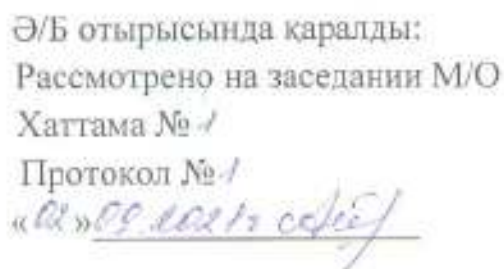 Ә/Б отырысында қаралды:
Рассмотрено на заседании М/О
Хаттама № 1
Протокол № 1
«02» 09 2021г